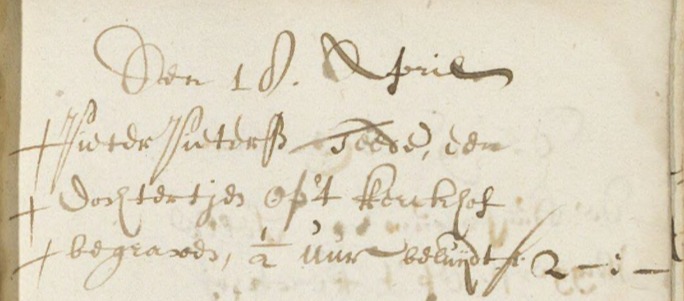 Den 18. April
Pieter Pieterss Teese, een
dochtertjen op't kerckhof
begraven, ½ uur beluydt f 2 - : -